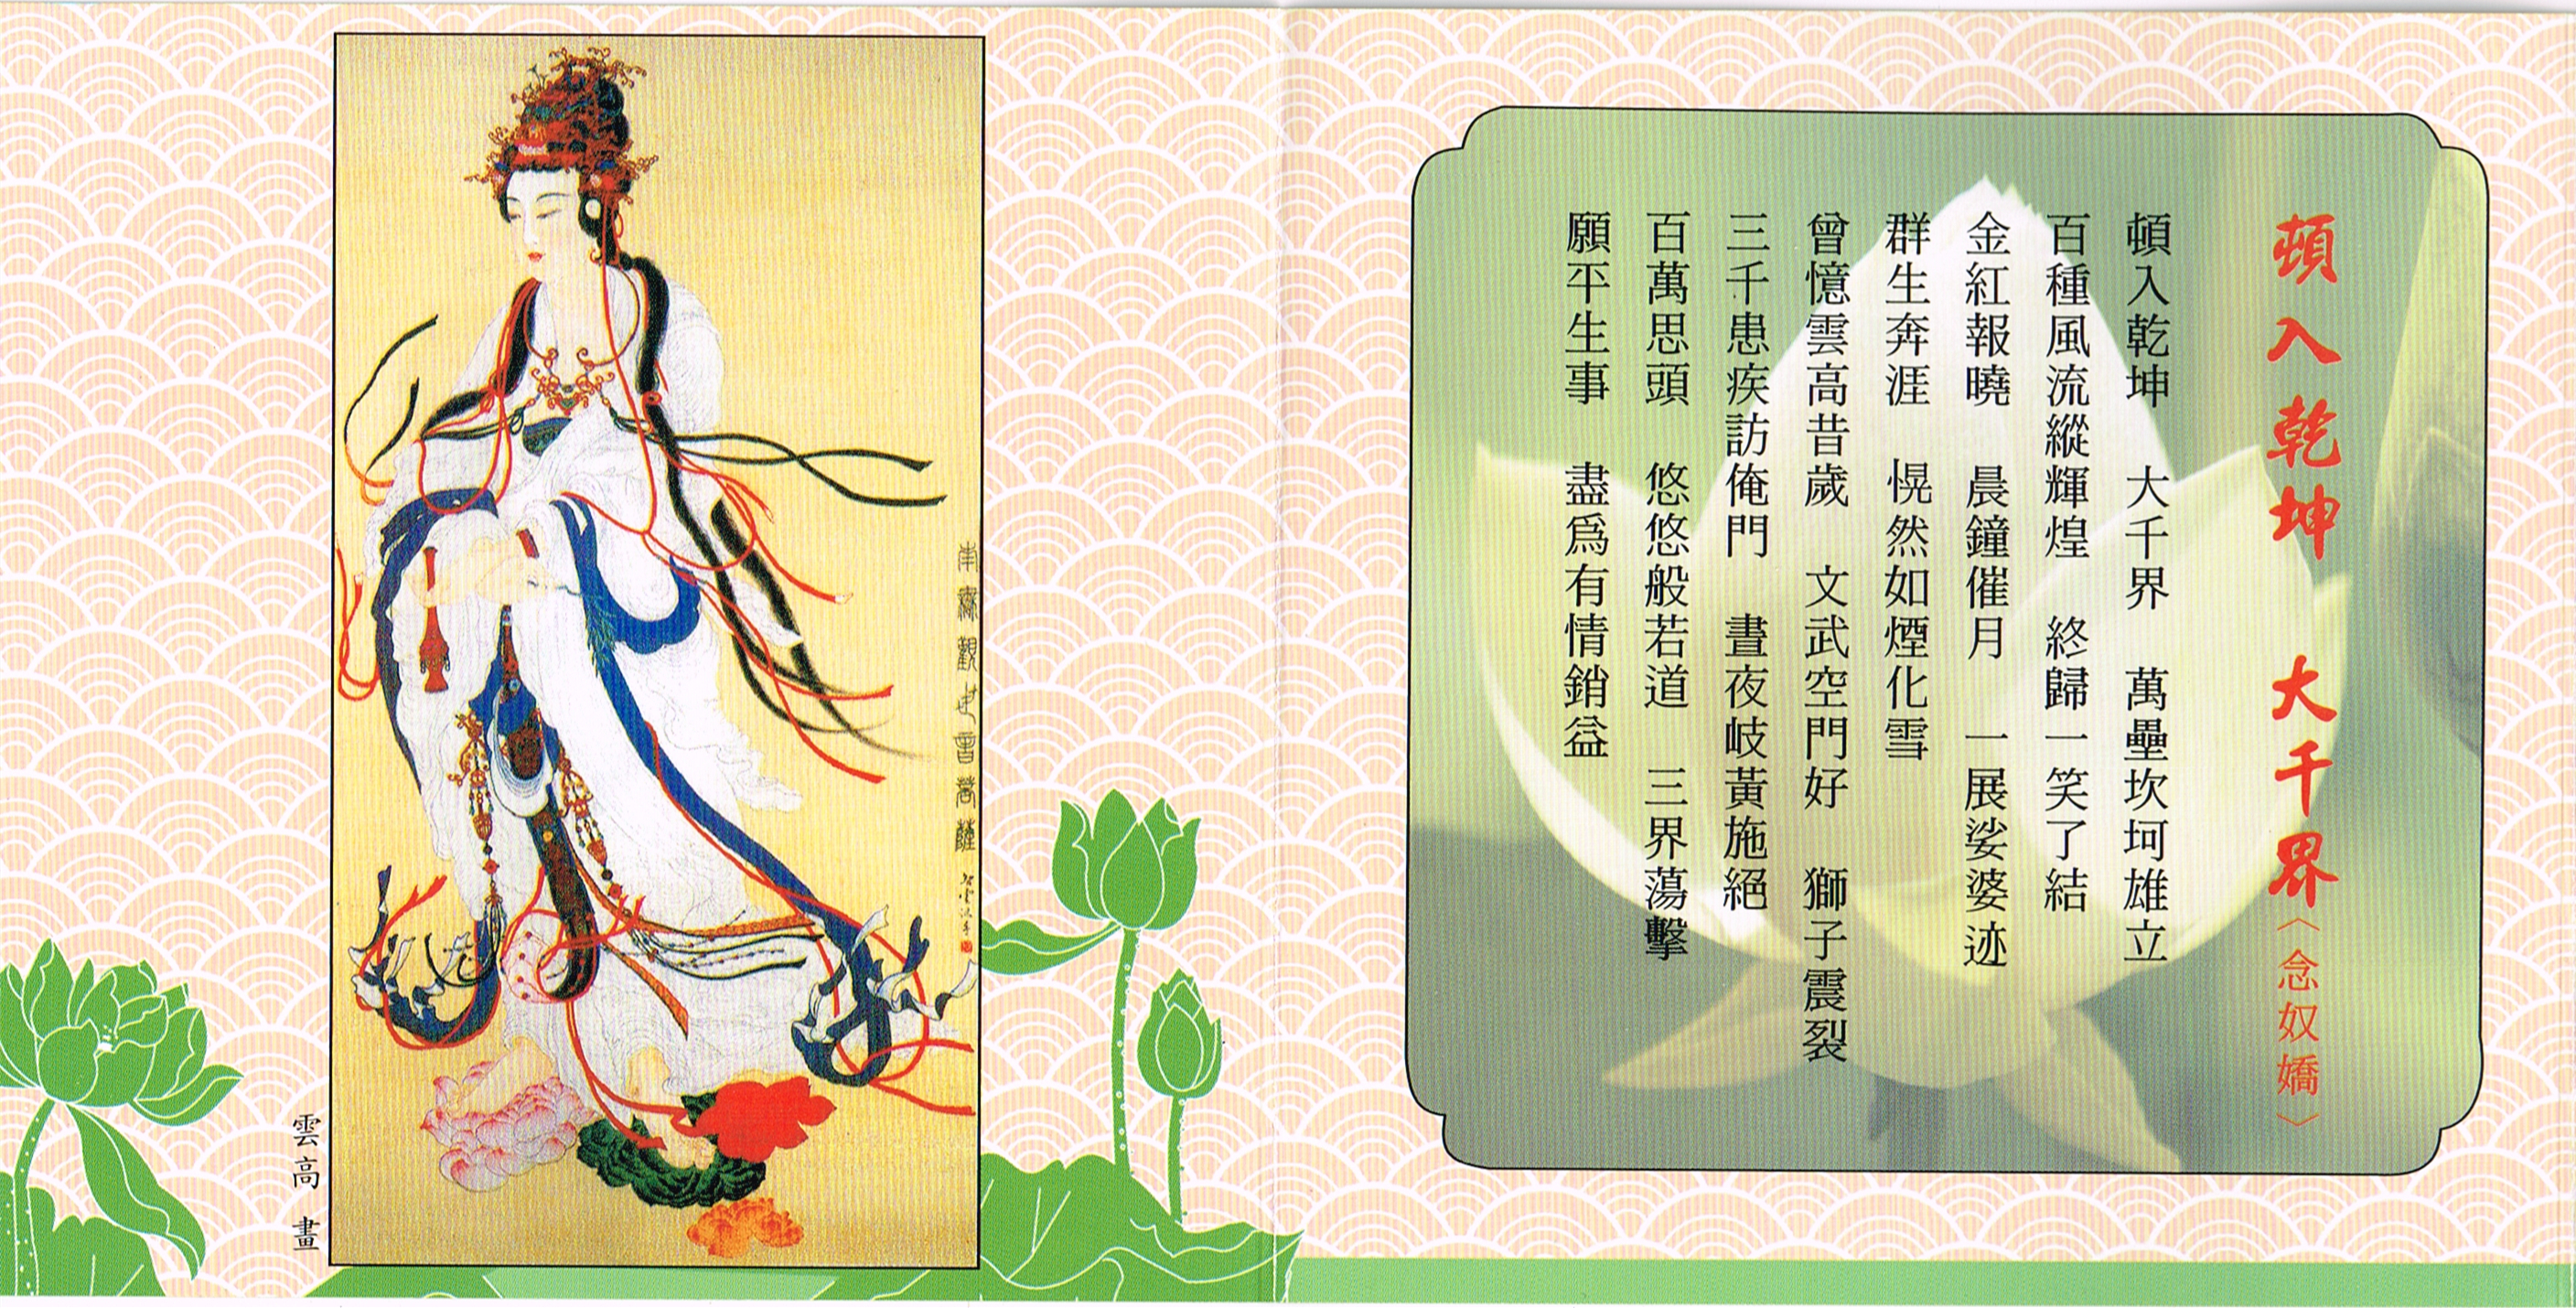 頓入乾坤 大千界〈念奴嬌〉
頓入乾坤 大千界 萬壘坎坷雄立
百種風流縱輝煌 終歸一笑了結
金紅報曉 晨鐘催月 一展娑婆迹
群生奔涯 愰然如煙化雪
曾憶雲高昔歲 文武空門好 獅子震裂
三千患疾訪俺門 晝夜岐黃施絕
百萬思頭 悠悠般若道 三界蕩擊
願平生事 盡爲有情銷益
南無觀世音菩薩
雲高 畫